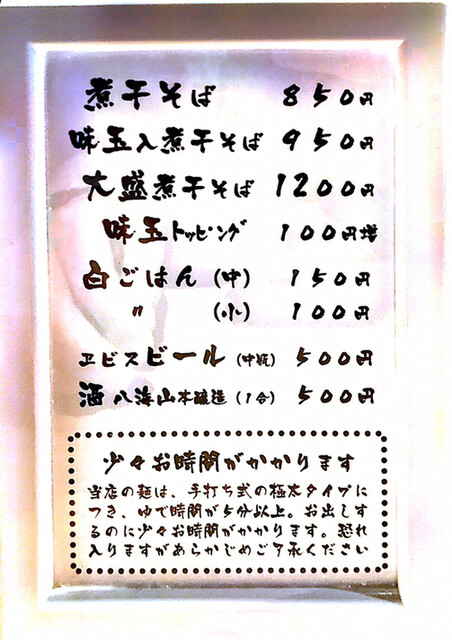 煮干そば 850円
味玉入煮干そば 950円
大盛煮干そば 1200円
味玉トッピング 100円増
白ごはん(中) 150円
〃 (小) 100円
ヱビスビール(中瓶) 500円
酒 八海山本醸造(1合) 500円
少々お時間がかかります
当店の麺は、手打ち式の極太タイプに
つき、ゆで時間が5分以上。お出しす
るのに少々お時間がかかります。恐れ
入りますがあらかじめご了承ください